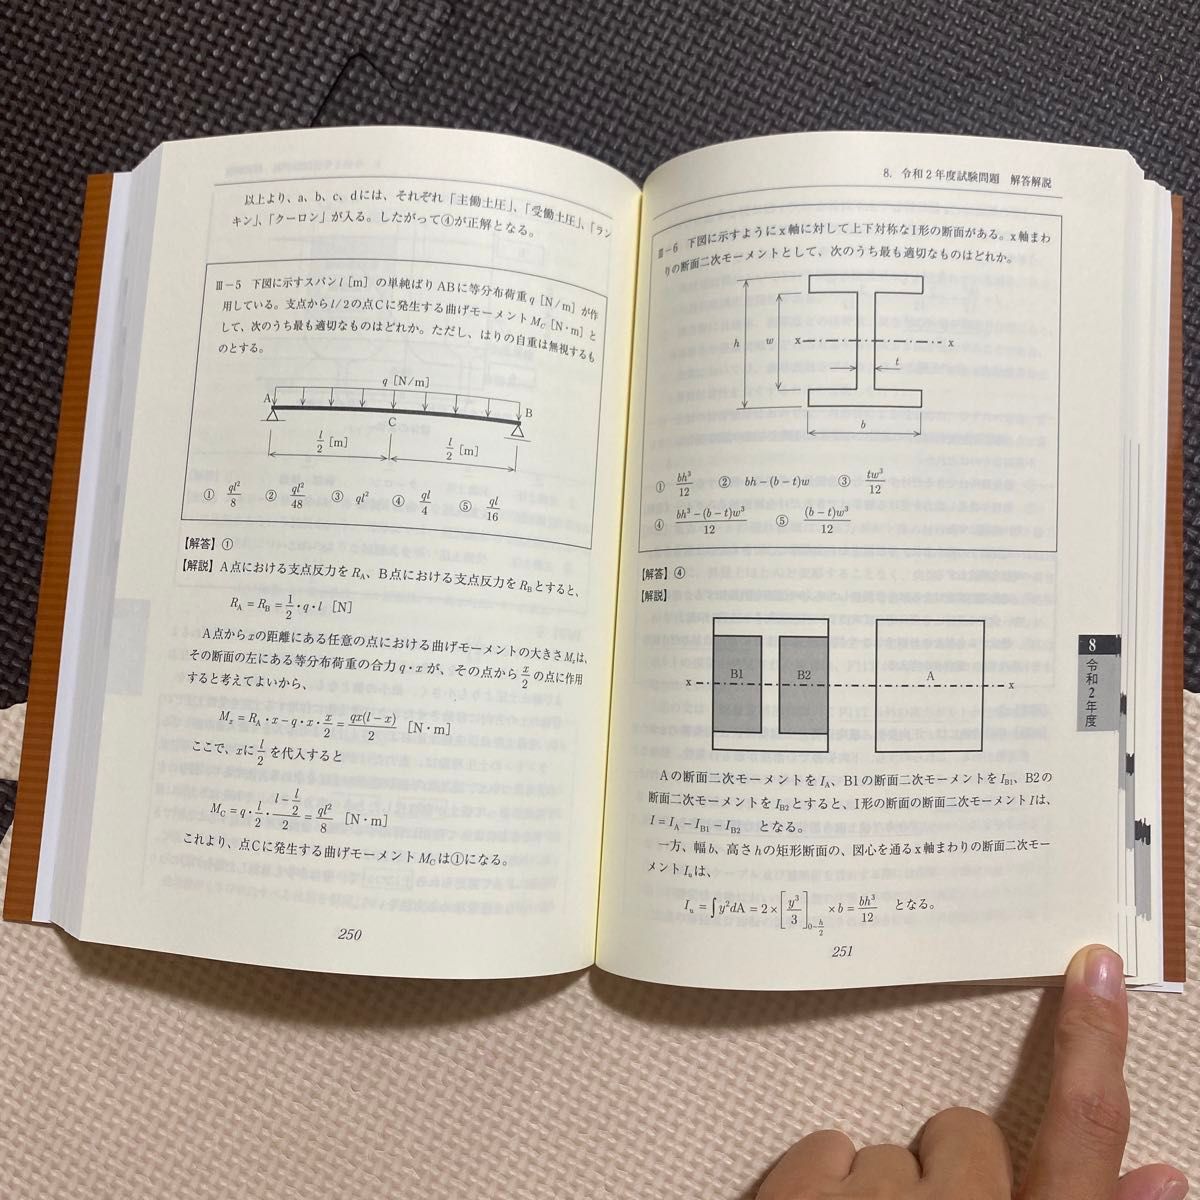 以上より、a、b、c、dには、それぞれ「主働土圧」、「受働土圧」、「ラン
キン」、「クーロン」が入る。したがって④が正解となる。
Ⅲ－5 下図に示すスパンl［m］の単純ばりABに等分布荷重q［N/m］が作
用している。支点からl/2の点Cに発生する曲げモーメントMC［N・m］と
して、次のうち最も適切なものはどれか。ただし、はりの自重は無視するも
のとする。
q［N/m］
A
B
C
l/2［m］
l/2［m］
① ql²/8 ② ql²/48 ③ ql² ④ ql/4 ⑤ ql/16
【解答】①
【解説】A点における支点反力をRA、B点における支点反力をRBとすると、
RA＝RB＝1/2・q・l［N］
A点からxの距離にある任意の点における曲げモーメントの大きさMxは、
その断面の左にある等分布荷重の合力q・xが、その点からx/2の点に作用
すると考えてよいから、
Mx＝RA・x－q・x・x/2＝qx(l－x)/2［N・m］
ここで、xにl/2を代入すると
MC＝q・l/2・(l－l/2)/2＝ql²/8［N・m］
これより、点Cに発生する曲げモーメントMCは①になる。
250
8. 令和2年度試験問題 解答解説
Ⅲ－6 下図に示すようにx軸に対して上下対称なI形の断面がある。x軸まわ
りの断面二次モーメントとして、次のうち最も適切なものはどれか。
h
w
x
x
t
b
① bh³/12 ② bh－(b－t)w ③ tw³/12
④ bh³－(b－t)w³/12 ⑤ (b－t)w³/12
【解答】④
【解説】
B1
B2
A
x
x
Aの断面二次モーメントをIA、B1の断面二次モーメントをIB1、B2の
断面二次モーメントをIB2とすると、I形の断面の断面二次モーメントIは、
I＝IA－IB1－IB2 となる。
一方、幅b、高さhの矩形断面の、図心を通るx軸まわりの断面二次モー
メントIuは、
Iu＝∫y²dA＝2×[y³/3]0~h/2×b＝bh³/12 となる。
251
8
令和2年度